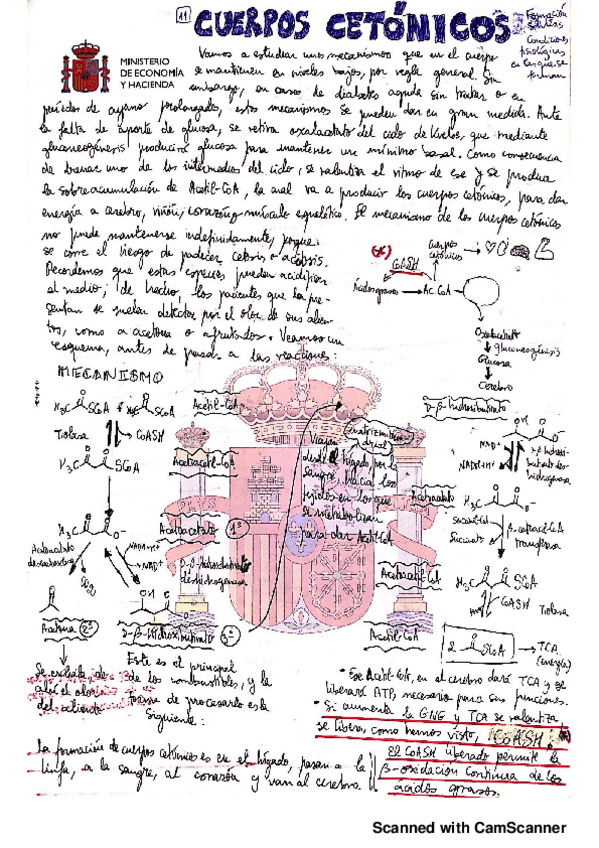 11 CUERPOS CETÓNICOS
Formación
Condiciones
fisiológicas
en las que se
forman
MINISTERIO
DE ECONOMÍA
Y HACIENDA
Vamos a estudiar unos mecanismos que en el cuerpo
se mantienen en niveles bajos, por regla general. Sin
embargo, en casos de diabetes aguda sin tratar o en
períodos de ayuno prolongado, estos mecanismos se pueden dar en gran medida. Ante
la falta de aporte de glucosa, se retira oxalacetato del ciclo de Krebs, que mediante
gluconeogénesis producirá glucosa para mantener un mínimo basal. Como consecuencia
de drenar uno de los intermedios del ciclo, se ralentiza el ritmo de ese y se produce
la sobreacumulación de Acetil-CoA, la cual va a producir los cuerpos cetónicos, para dar
energía a cerebro, riñón, corazón y músculo esquelético. El mecanismo de los cuerpos cetónicos
no puede mantenerse indefinidamente, porque
se corre el riesgo de padecer cetosis o acidosis.
Recordemos que estas especies pueden acidificar
el medio; de hecho, los pacientes que la pre-
sentan se suelen detectar por el olor de sus alien-
tos, como a acetona o afrutados. Veamos un
esquema, antes de pasar a las reacciones:
(*)
CoASH
Cuerpos
cetónicos
Ácidos grasos
Ac-CoA
Oxalacetato
gluconeogénesis
Glucosa
Cerebro
MECANISMO
H₃C SCoA + H₃C SCoA Acetil-CoA
Tiolasa CoASH
H₃C SCoA Acetoacetil-CoA
H₃C O⁻ Acetoacetato 1º
Acetoacetato
descarboxilasa
CO₂
NADH+H⁺
NAD⁺
D-β-hidroxibutirato
deshidrogenasa
Acetona 2º
D-β-Hidroxibutirato 3º
Viajan
desde el hígado por la
sangre hacia los
tejidos en los que
se metabolizan
para dar Acetil-CoA
D-β-hidroxibutirato
OH
NAD⁺
NADH+H⁺
β-hidroxi-
butirato des-
hidrogenasa
Acetoacetato
H₃C O⁻
Succinil-CoA
Succinato
β-cetoacil-CoA
Transferasa
Acetoacetil-CoA
H₃C SCoA
CoASH
Tiolasa
Acetil-CoA
2 SCoA → TCA
(energía)
Se exhala, de
ahí el olor
del aliento
Este es el principal
de los combustibles, y la
forma de procesarlo es la
siguiente:
La formación de cuerpos cetónicos es en el hígado, pasan a la
linfa, a la sangre, al corazón y van al cerebro.
• Ese Acetil-CoA, en el cerebro dará TCA y se
liberará ATP, necesario para sus funciones.
• Si aumenta la GNG y TCA se ralentiza
se libera, como hemos visto, CoASH (*)
El CoASH liberado permite la
β-oxidación continua de los
ácidos grasos.
Scanned with CamScanner